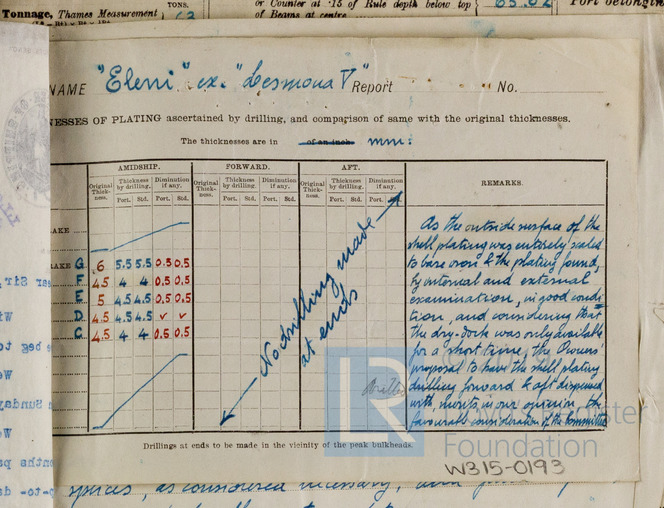 Tonnage, Thames Measurement
TONS.
or Counter at '15 of Rule depth below top
of Beams at centre
Port belonging
NAME "Elerri" ex. "Desmona V" Report No.
NESSES OF PLATING ascertained by drilling, and comparison of same with the original thicknesses.
The thicknesses are in of an inch mm:
AMIDSHIP. FORWARD. AFT. REMARKS.
Original Thickness. Thickness by drilling. Diminution if any. Original Thickness. Thickness by drilling. Diminution if any. Original Thickness. Thickness by drilling. Diminution if any.
Port. Std. Port. Std. Port. Std. Port. Std. Port. Std. Port. Std.
AKE
AKE G 6 5.5 5.5 0.5 0.5
F 4.5 4 4 0.5 0.5
E 5 4.5 4.5 0.5 0.5
D 4.5 4.5 4.5 ✓ ✓
C 4.5 4 4 0.5 0.5
No drilling made
at ends
As the outside surface of the
shell plating was entirely scaled
to bare iron & the plating found,
by internal and external
examination, in good condi-
tion, and considering that
the dry-dock was only available
for a short time, the Owners'
proposal to have the shell plating
drilling forward & aft dispensed
with merits in our opinion the
favourable consideration of the Committee
Drillings at ends to be made in the vicinity of the peak bulkheads.
LR
Register
Foundation
W315-0193
spices, as considered necessary, and